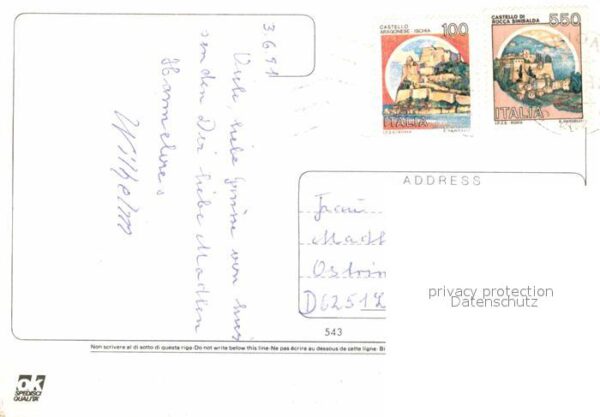 3.6.91
Viele liebe Grüsse von hier
senden Dir liebe Madlen
Hannelore &
Wilhelm
CASTELLO
ARAGONESE - ISCHIA
100
ITALIA
CASTELLO DI
ROCCA SINIBALDA
550
ITALIA
I.P.Z.S. ROMA
ADDRESS
Madl
D6251
privacy protection
Datenschutz
543
Non scrivere al di sotto di questa riga-Do not write below this line-Ne pas écrire au dessous de cette ligne
ok
SPEDISCI
QUALITÀ!